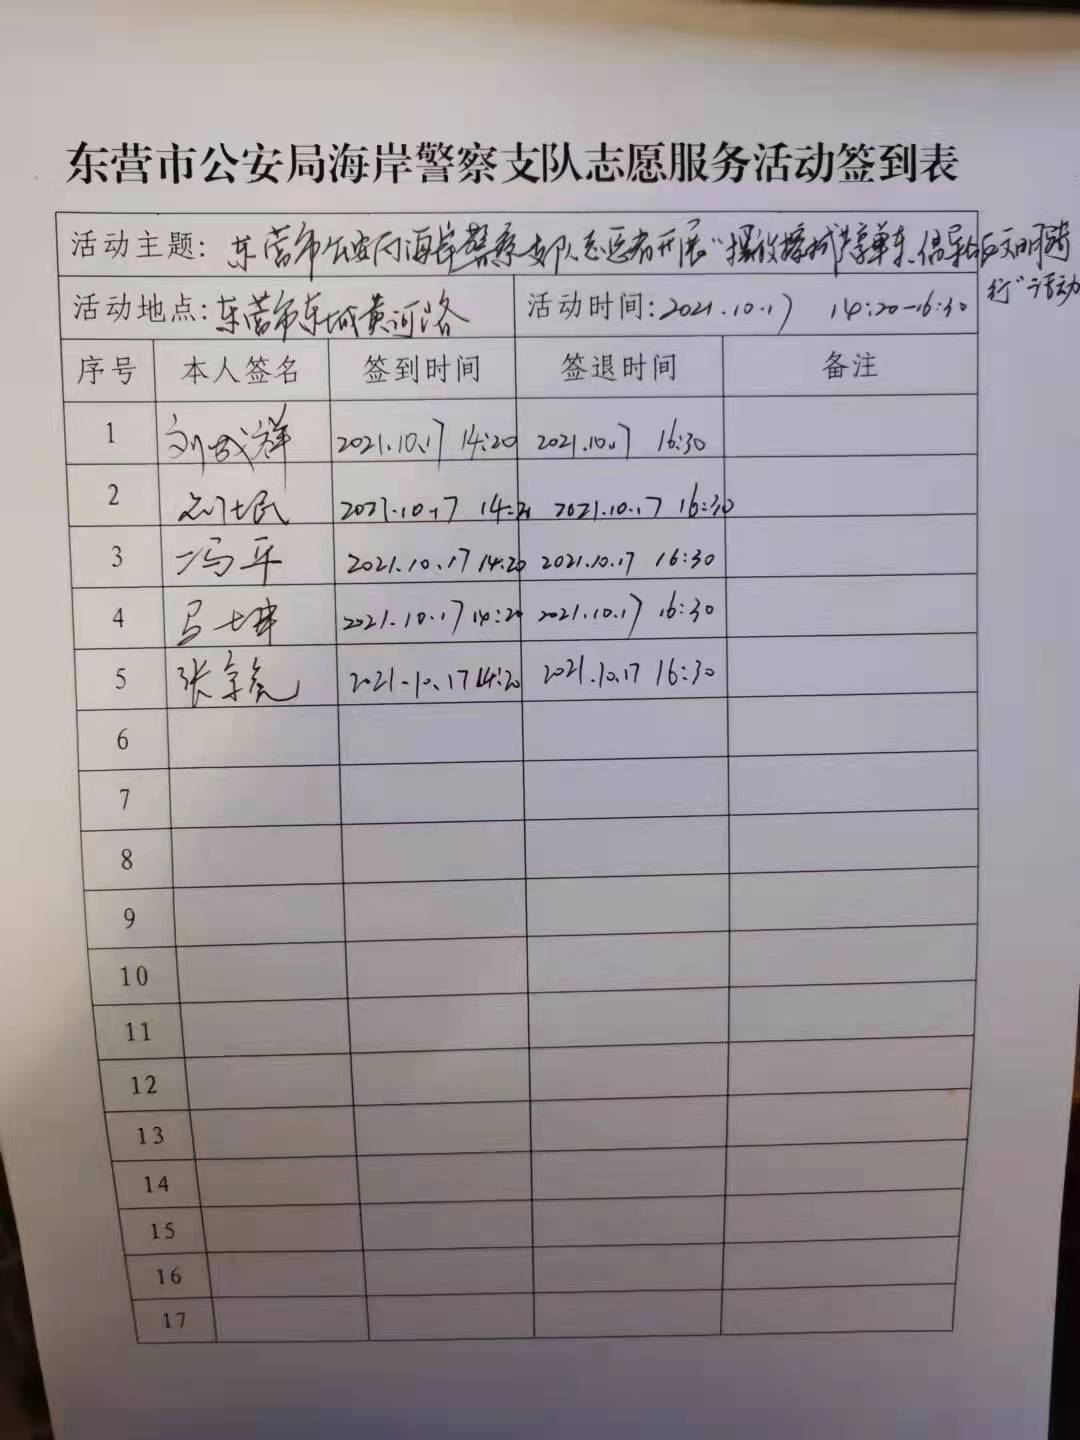 东营市公安局海岸警察支队志愿服务活动签到表
活动主题: 东营市公安局海岸警察支队志愿者开展“摆放 单车、倡导 文明骑
行”活动
活动地点: 东营市东城黄河路 活动时间: 2021.10.17 14:20-16:30
序号 本人签名 签到时间 签退时间 备注
1 刘成祥 2021.10.17 14:20 2021.10.17 16:30
2 2021.10.17 14:20 2021.10.17 16:30
3 冯平 2021.10.17 14:20 2021.10.17 16:30
4 2021.10.17 14:20 2021.10.17 16:30
5 张 2021.10.17 14:20 2021.10.17 16:30
6
7
8
9
10
11
12
13
14
15
16
17